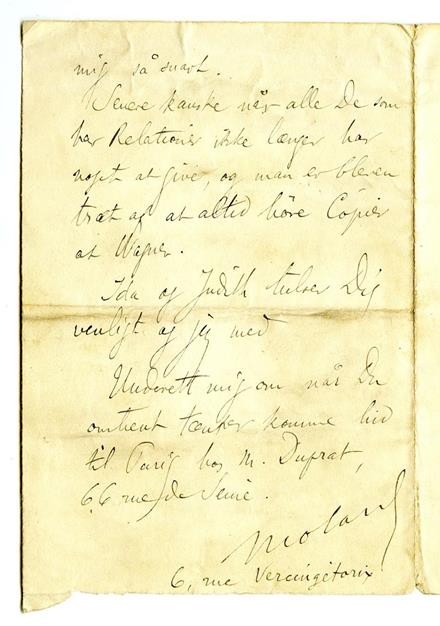 mig så snart.
Senere kanske når alle De som
har Relationer ikke længer har
nogt at give, og man er bleven
træt af at altid höre Copier
at Wagner.
Ida og Judith hilser Dig
venligt og jeg med
Underett mig om når Du
omtrent tænker komme hid
til Paris hos M. Duprat,
66 rue de Seine.
Molard
6, rue Vercingétorix